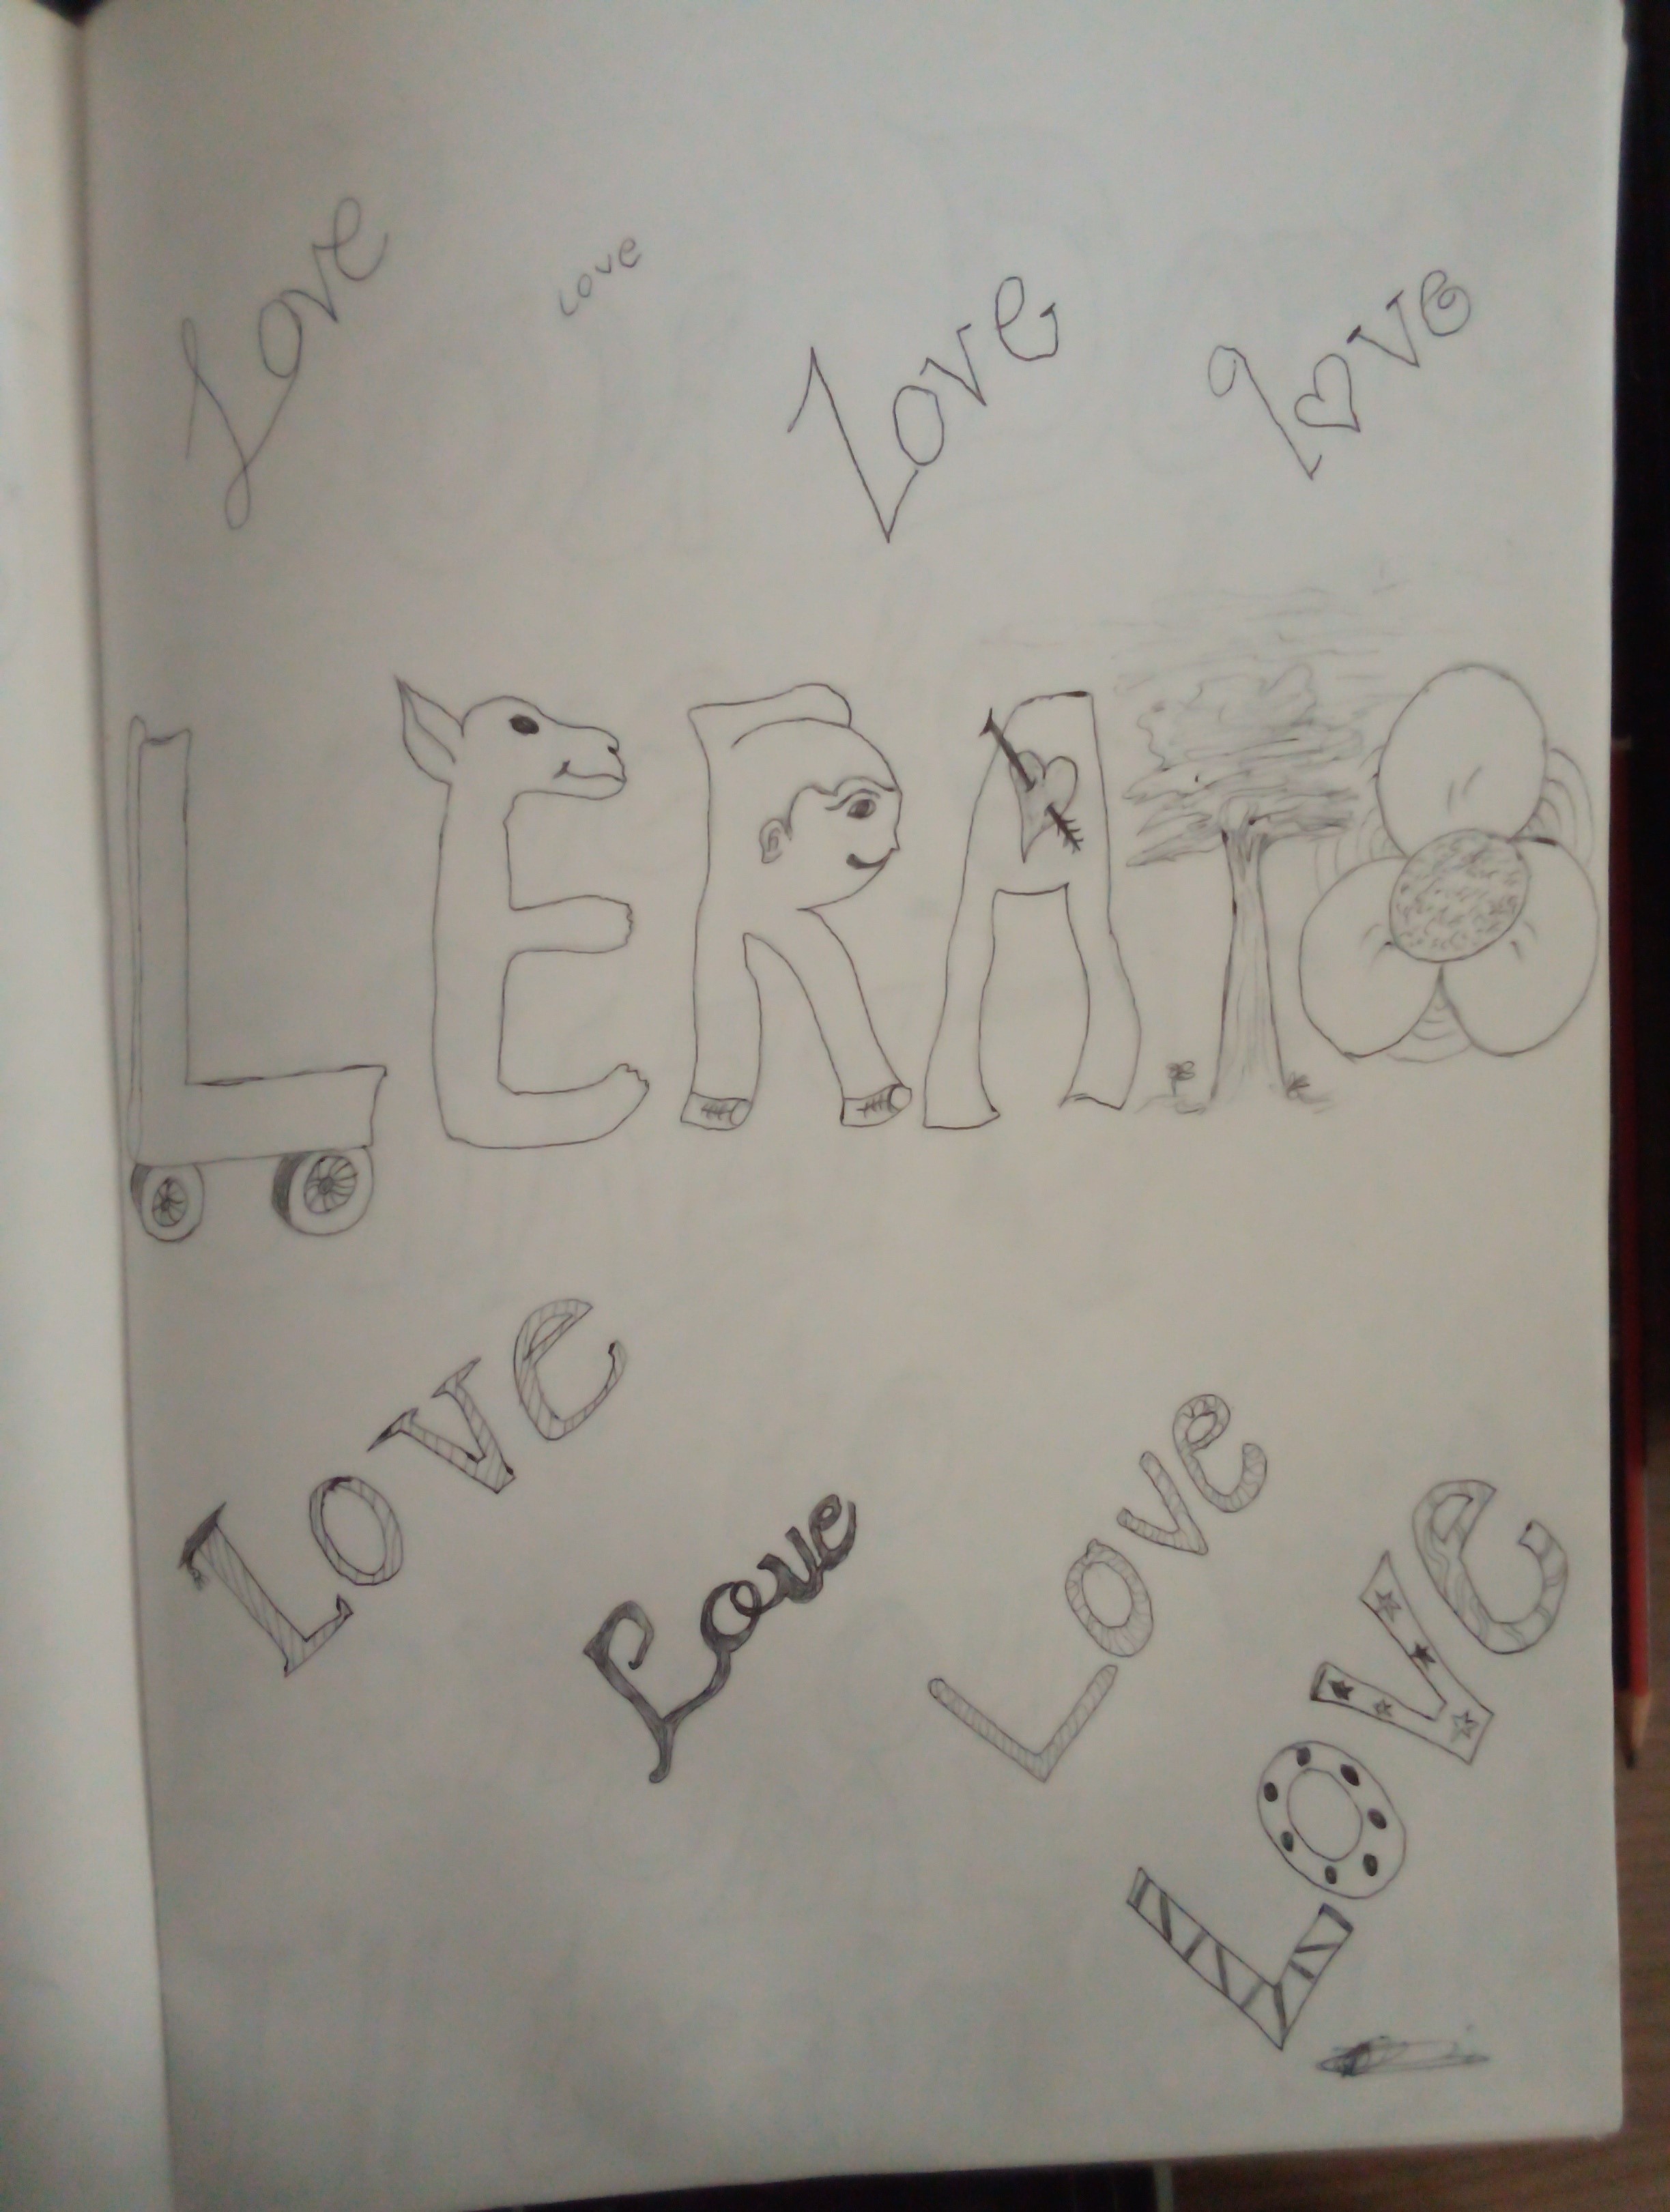 Love Love Love Love
LERATO
Love Love Love LOVe